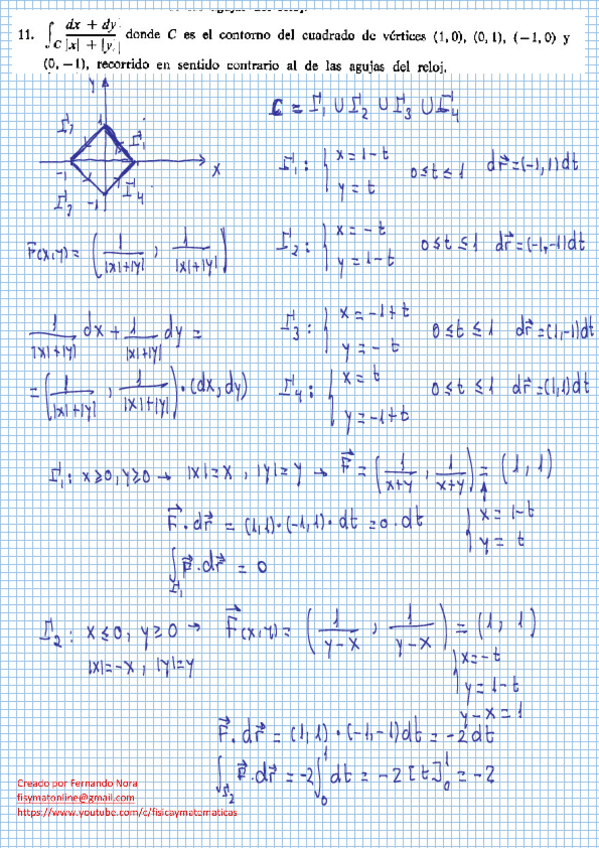 11. ∫_C (dx + dy)/(|x| + |y|) donde C es el contorno del cuadrado de vértices (1, 0), (0, 1), (−1, 0) y
(0, −1), recorrido en sentido contrario al de las agujas del reloj.
C = Γ₁ ∪ Γ₂ ∪ Γ₃ ∪ Γ₄
Y
Γ₂ 1 Γ₁
-1 1 X
Γ₃ -1 Γ₄
Γ₁: { x = 1-t
y = t
0 ≤ t ≤ 1 dr⃗ = (-1, 1) dt
F(x,y) = (1/(|x|+|y|), 1/(|x|+|y|))
Γ₂: { x = -t
y = 1-t
0 ≤ t ≤ 1 dr⃗ = (-1, -1) dt
1/(|x|+|y|) dx + 1/(|x|+|y|) dy =
= (1/(|x|+|y|), 1/(|x|+|y|)) · (dx, dy)
Γ₃: { x = -1+t
y = -t
0 ≤ t ≤ 1 dr⃗ = (1, -1) dt
Γ₄: { x = t
y = -1+t
0 ≤ t ≤ 1 dr⃗ = (1, 1) dt
Γ₁: x ≥ 0, y ≥ 0 → |x| = x, |y| = y → F⃗ = (1/(x+y), 1/(x+y)) = (1, 1)
{ x = 1-t
y = t
F⃗ · dr⃗ = (1,1) · (-1,1) · dt = 0 · dt
∫_Γ₁ F⃗ · dr⃗ = 0
Γ₂: x ≤ 0, y ≥ 0 → F⃗(x,y) = (1/(y-x), 1/(y-x)) = (1, 1)
|x| = -x, |y| = y
{ x = -t
y = 1-t
y-x = 1
F⃗ · dr⃗ = (1,1) · (-1,-1) dt = -2 dt
∫_Γ₂ F⃗ · dr⃗ = -2 ∫₀¹ dt = -2 [t]₀¹ = -2
Creado por Fernando Nora
fisymatonline@gmail.com
https://www.youtube.com/c/fisicaymatematicas